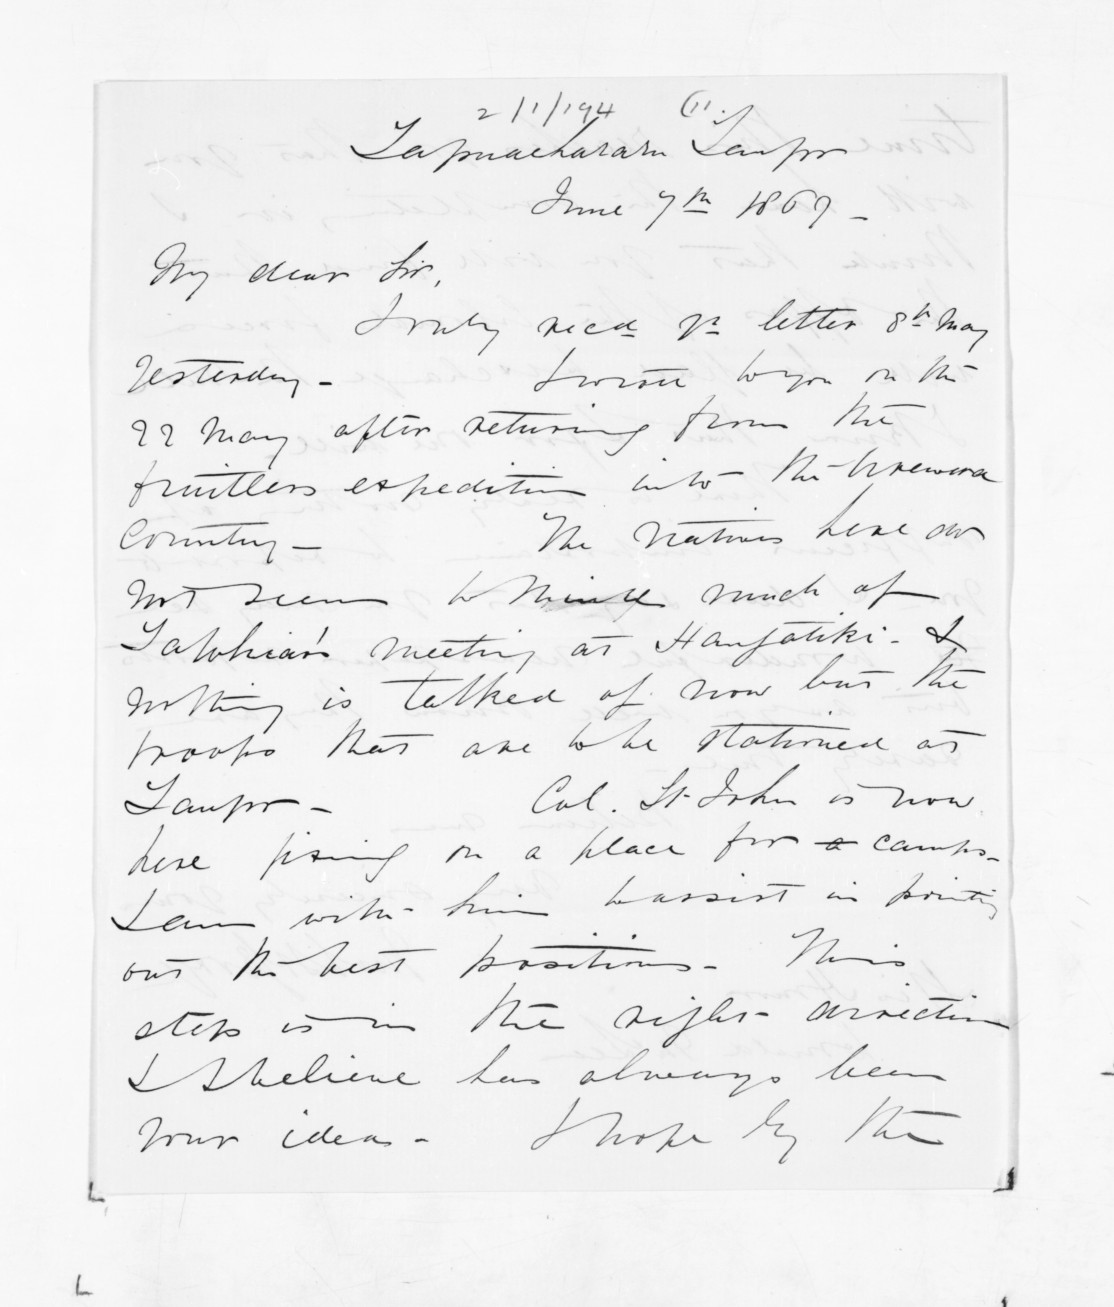 2/1/194 (11.
Tapuaeharuru Taupo
June 7th 1869 -
My dear Sir,
I only recd yr letter 8th May
Yesterday - I wrote to you on the
22 May after returning from the
fruitless expedition into the Urewera
Country - The Natives here do
not seem to think much of
Tawhiao's meeting at Hangatiki - &
nothing is talked of now but the
troops that are to be stationed at
Taupo - Col. St John is now
here fixing on a place for a camp -
I am with him to assist in pointing
out the best positions - This
step is in the right direction
& I believe has always been
your idea - I hope by the